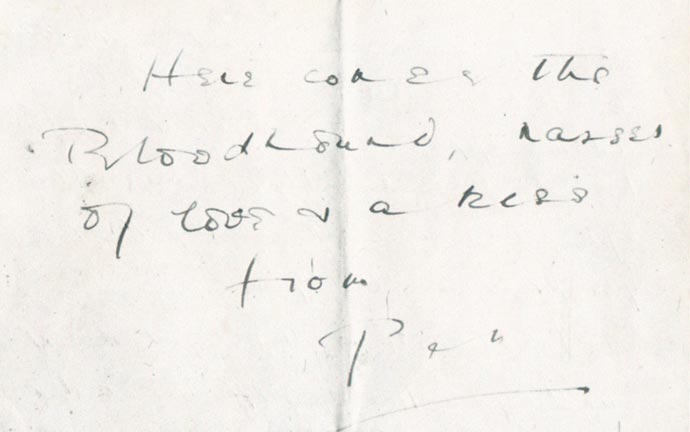 Here comes the
Bloodhound, masses
of love & a kiss
from